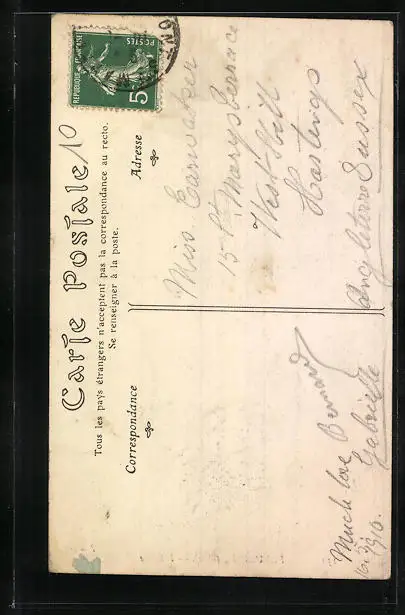 Carte Postale 10
Tous les pays étrangers n'acceptent pas la correspondance au recto.
Se renseigner à la poste.
Correspondance
Adresse
REPUBLIQUE FRANÇAISE
POSTES
5
Miss
15 St Marys Terrace
West Hill
Hastings
Sussex
Angleterre
Much love Bernard
Gabrielle
1910.